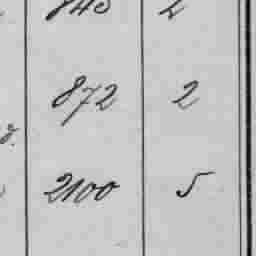 843 2
872 2
2100 5